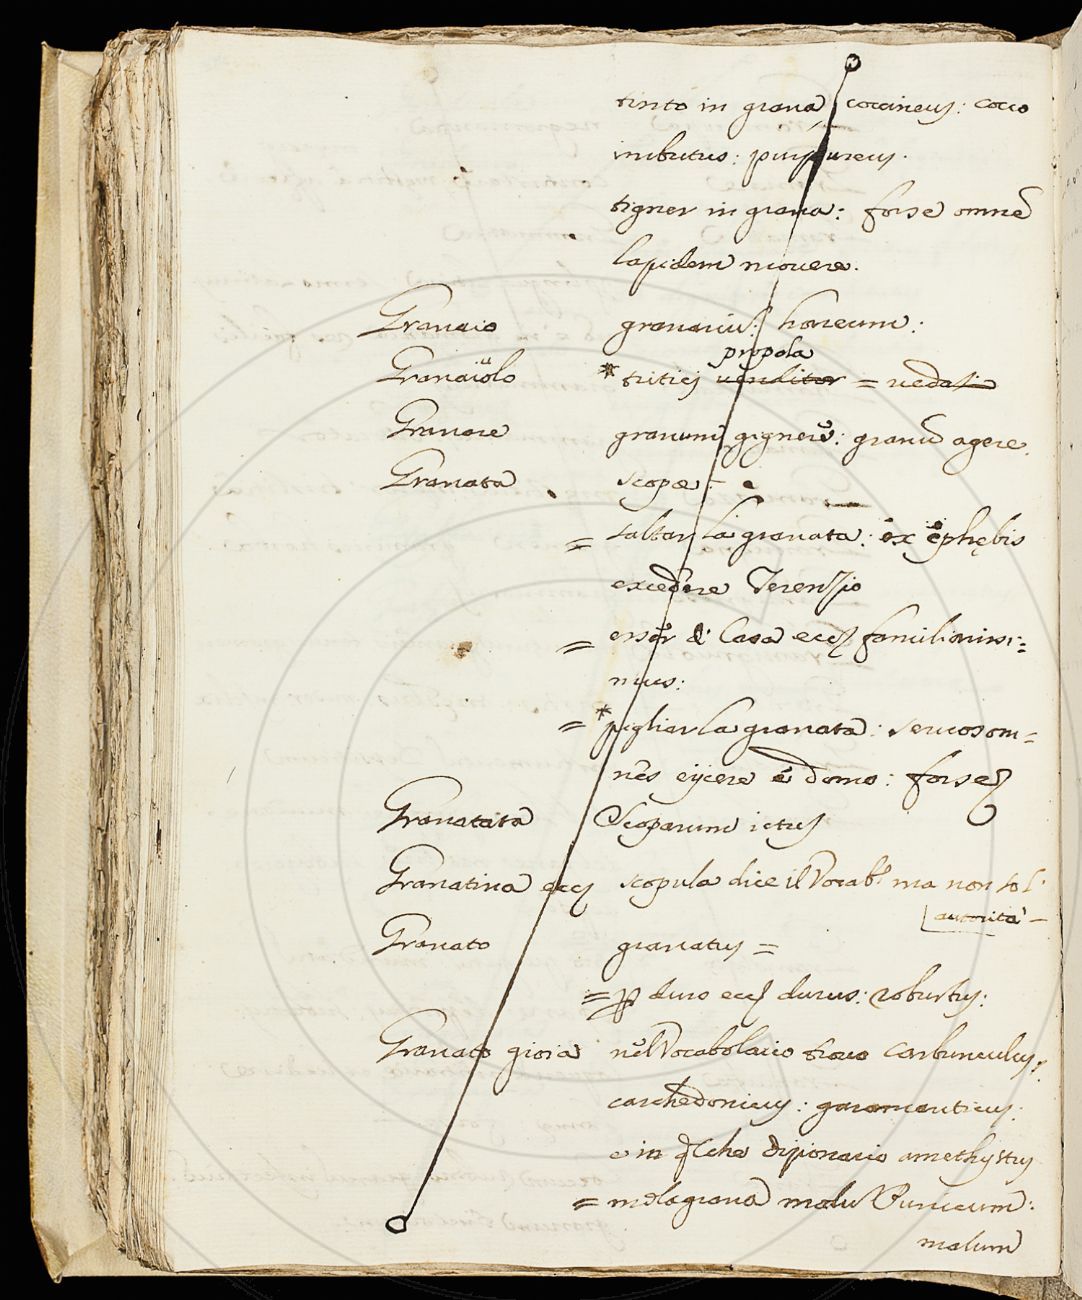 tinto in grana coccineus: cocco
imbutus: purpureus.
tigner in grana: forse omnē
lapidem movere.
Granaio granarium: horreum:
propola
Granaiuolo * triticj venditor = vedasi
Granare granum gignere: granū agere.
Granata scopæ
= saltar la granata: ex ephębis
excedere Terenzio
= esser di Casa ecc. familiarissi=
mus:
= * pigliar la granata: servos om=
nēs eijcere é domo: forse
Granatata Scoparum ictus
Granatina ecc. scopula dice il Vocab.o ma non so l'
autorità
Granato granatus =
= p duro ecc. durus: robustus:
Granato gioia nel Vocabolaiio trovo carbunculus:
carchedonicus: garamanticus:
e in qlche dizionario amethystus
= melagrana malū Punicum:
malum